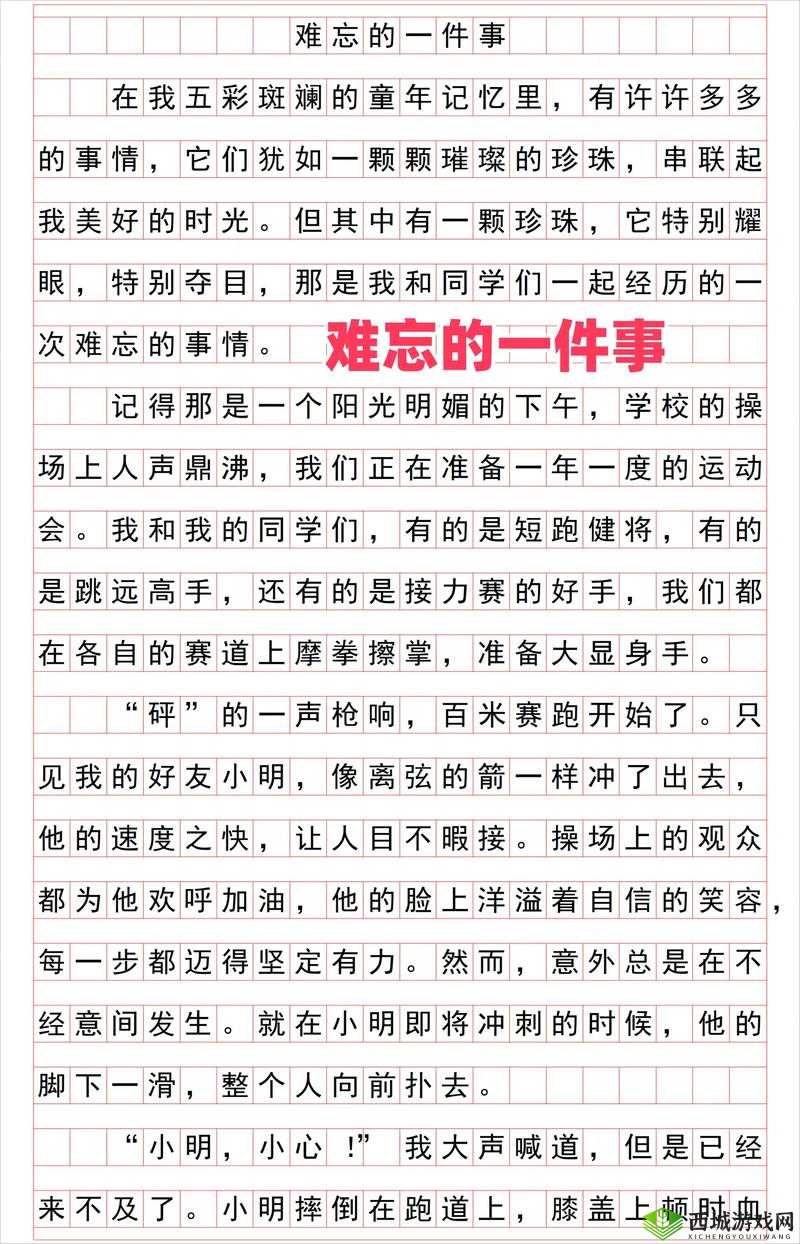 难忘的一件事
在我五彩斑斓的童年记忆里，有许许多多
的事情，它们犹如一颗颗璀璨的珍珠，串联起
我美好的时光。但其中有一颗珍珠，它特别耀
眼，特别夺目，那是我和同学们一起经历的一
次难忘的事情。
难忘的一件事
记得那是一个阳光明媚的下午，学校的操
场上人声鼎沸，我们正在准备一年一度的运动
会。我和我的同学们，有的是短跑健将，有的
是跳远高手，还有的是接力赛的好手，我们都
在各自的赛道上摩拳擦掌，准备大显身手。
“砰”的一声枪响，百米赛跑开始了。只
见我的好友小明，像离弦的箭一样冲了出去，
他的速度之快，让人目不暇接。操场上的观众
都为他欢呼加油，他的脸上洋溢着自信的笑容，
每一步都迈得坚定有力。然而，意外总是在不
经意间发生。就在小明即将冲刺的时候，他的
脚下一滑，整个人向前扑去。
“小明，小心!”我大声喊道，但是已经
来不及了。小明摔倒在跑道上，膝盖上顿时血
西城游戏网
XICHENGYOUXIWANG